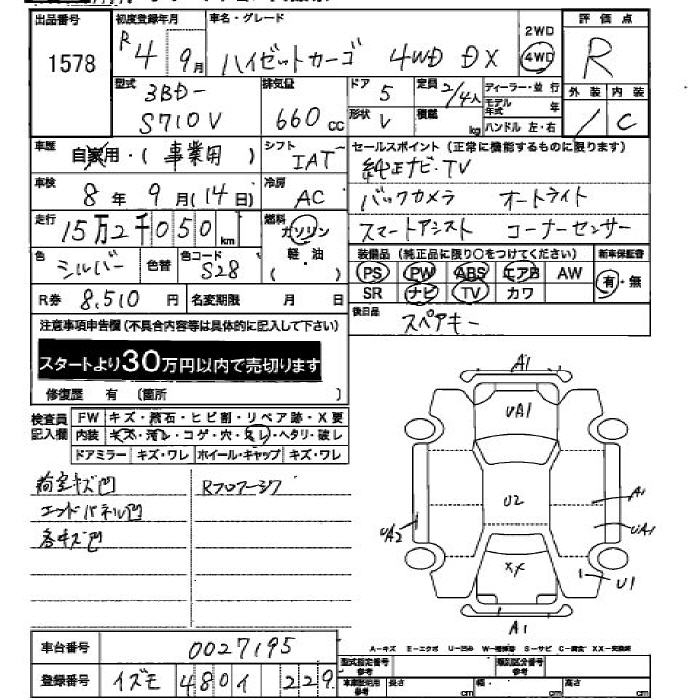 出品番号 初度登録年月 車名・グレード 2WD 評価点
1578 R4 9月 ハイゼットカーゴ 4WD DX 4WD R
型式 3BD- S710V 排気量 660cc ドア 5 定員 2/4人 ディーラー・並行 外装 内装
形状 V 積載 kg モデル年式 年 ハンドル 左・右 / C
車歴 自家用・(事業用) シフト IAT セールスポイント(正常に機能するものに限ります)
純正ナビ・TV
車検 8年9月(14日) 冷房 AC バックカメラ オートライト
走行 15万2千050km 燃料 ガソリン 軽・油 ( ) スマートアシスト コーナーセンサー
色 シルバー 色替 色コード S28 装備品(純正品に限り○をつけてください) 新車保証書
PS PW ABS エアB AW 有・無
SR ナビ TV カワ
R券 8,510円 名変期限 月 日 後日品 スペアキー
注意事項申告欄(不具合内容等は具体的に記入して下さい)
スタートより30万円以内で売切ります
修復歴 有 (箇所 )
検査員記入欄 FW キズ・飛石・ヒビ割・リペア跡・X要
内装 キズ・汚レ・コゲ・穴・スレ・ヘタリ・破レ
ドアミラー キズ・ワレ ホイール・キャップ キズ・ワレ
荷室キズ凹 Rフロアーシワ
エンドパネル凹
各キズ凹
A1
UA1
U2
A1
UA2
UA1
XX
U1
A1
車台番号 0027195
登録番号 イズモ 480 イ 229
A-キズ E-エクボ U-凹み W-補修跡 S-サビ C-腐食 XX-交換済
型式指定番号 参考 類別区分番号 参考
車庫証明用 参考 長さ cm 幅 cm 高さ cm